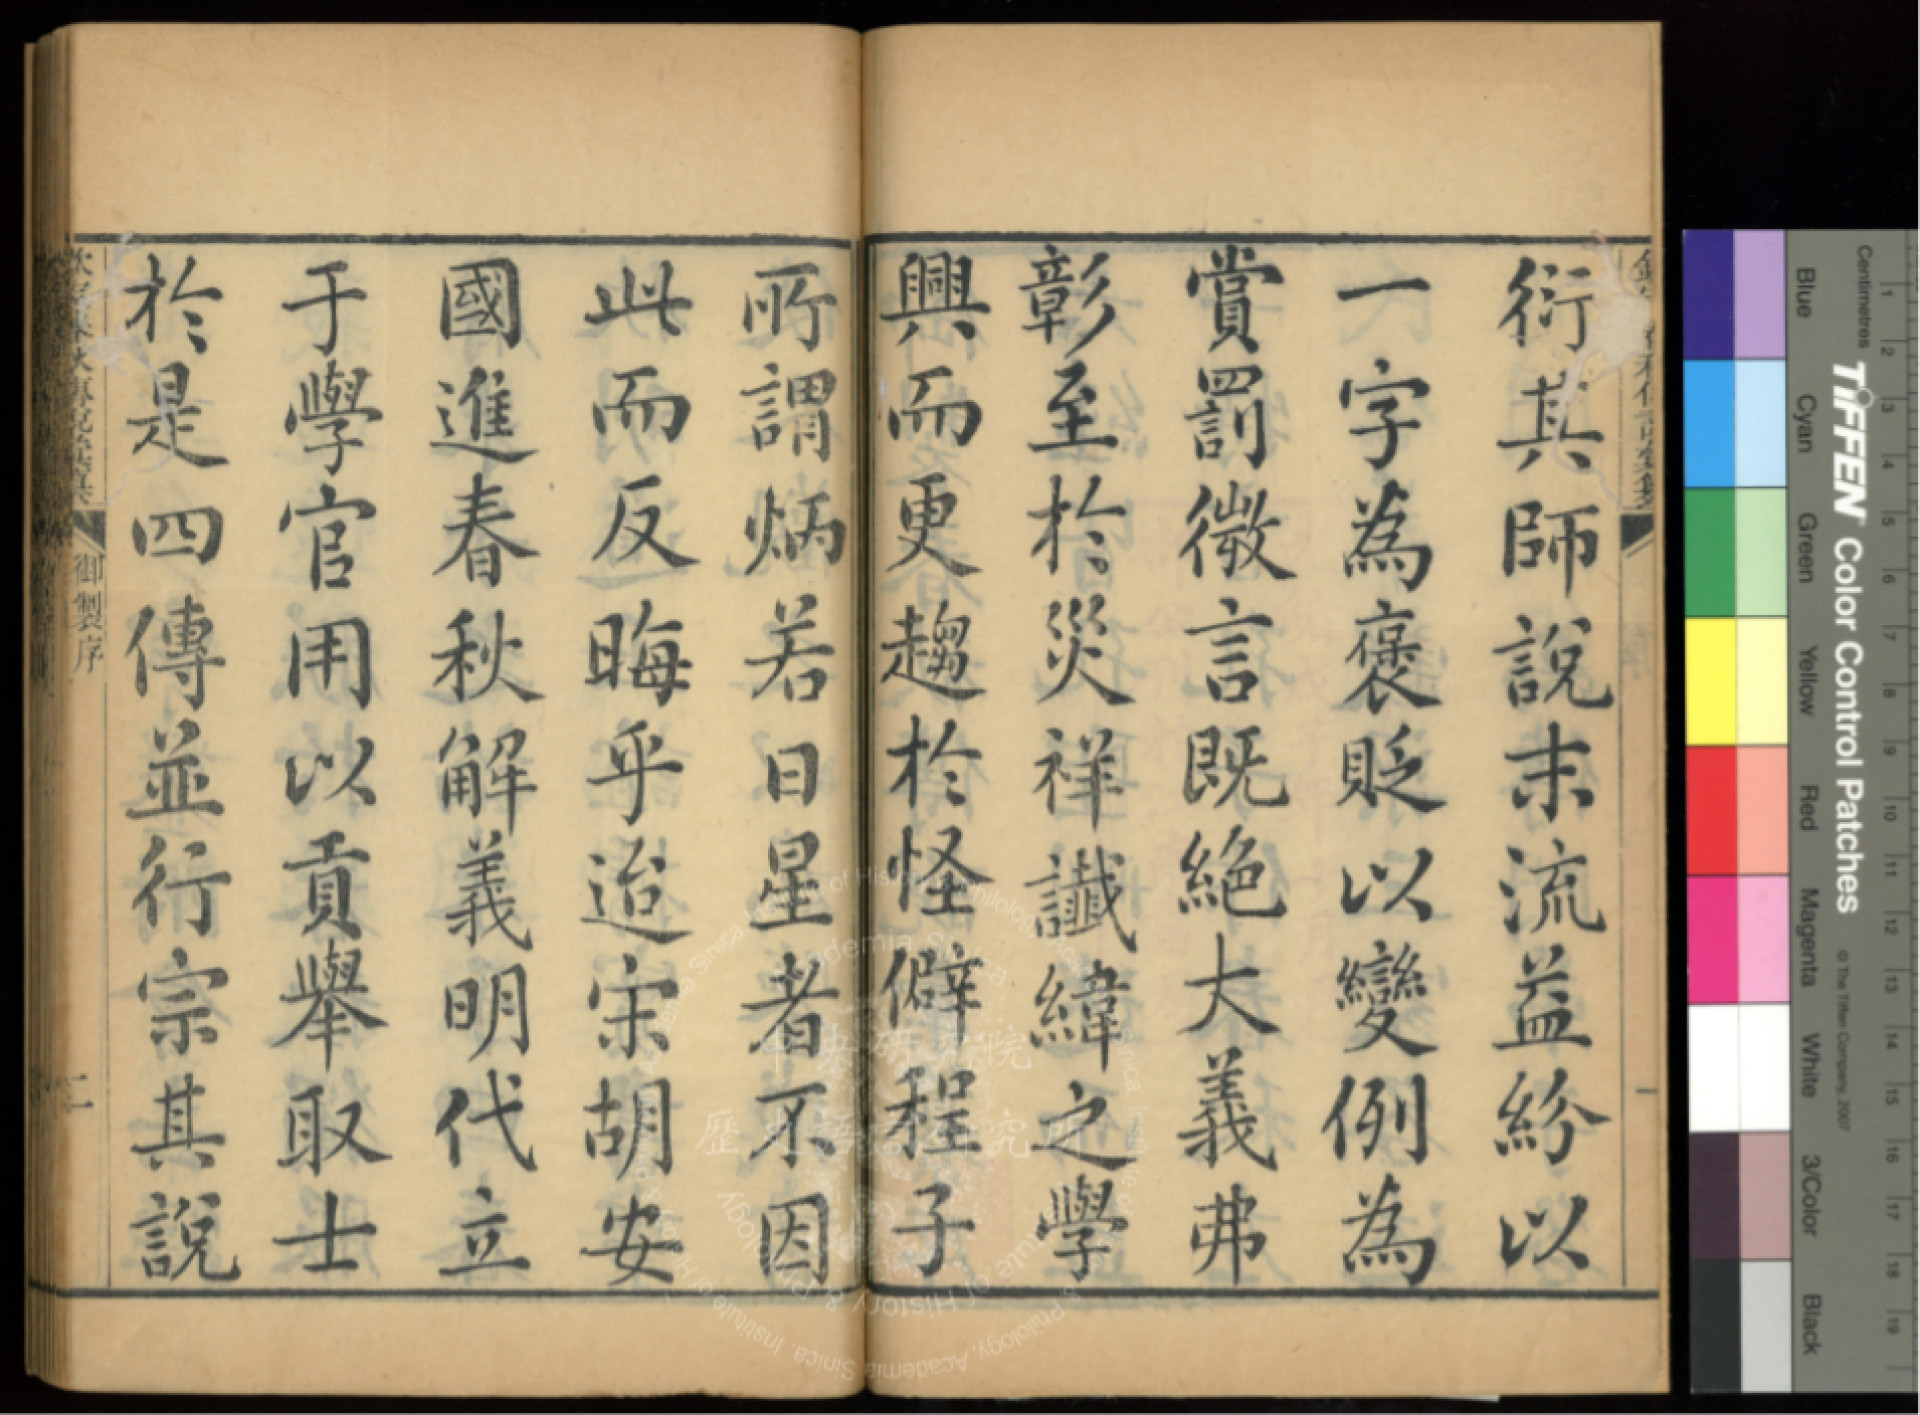 衍其師說末流益紛以
一字為褒貶以變例為
賞罰微言既絕大義弗
彰至於災祥讖緯之學
興而更趨於怪僻程子
所謂炳若日星者不因
此而反晦乎迨宋胡安
國進春秋解義明代立
于學官用以貢舉取士
於是四傳並行宗其說
御製序
二
一
中央研究院
歷史語言研究所
Institute of History & Philology, Academia Sinica
Centimetres
TIFFEN Color Control Patches
© The Tiffen Company, 2007
Blue
Cyan
Green
Yellow
Red
Magenta
White
3/Color
Black
1
2
3
4
5
6
7
8
9
10
11
12
13
14
15
16
17
18
19